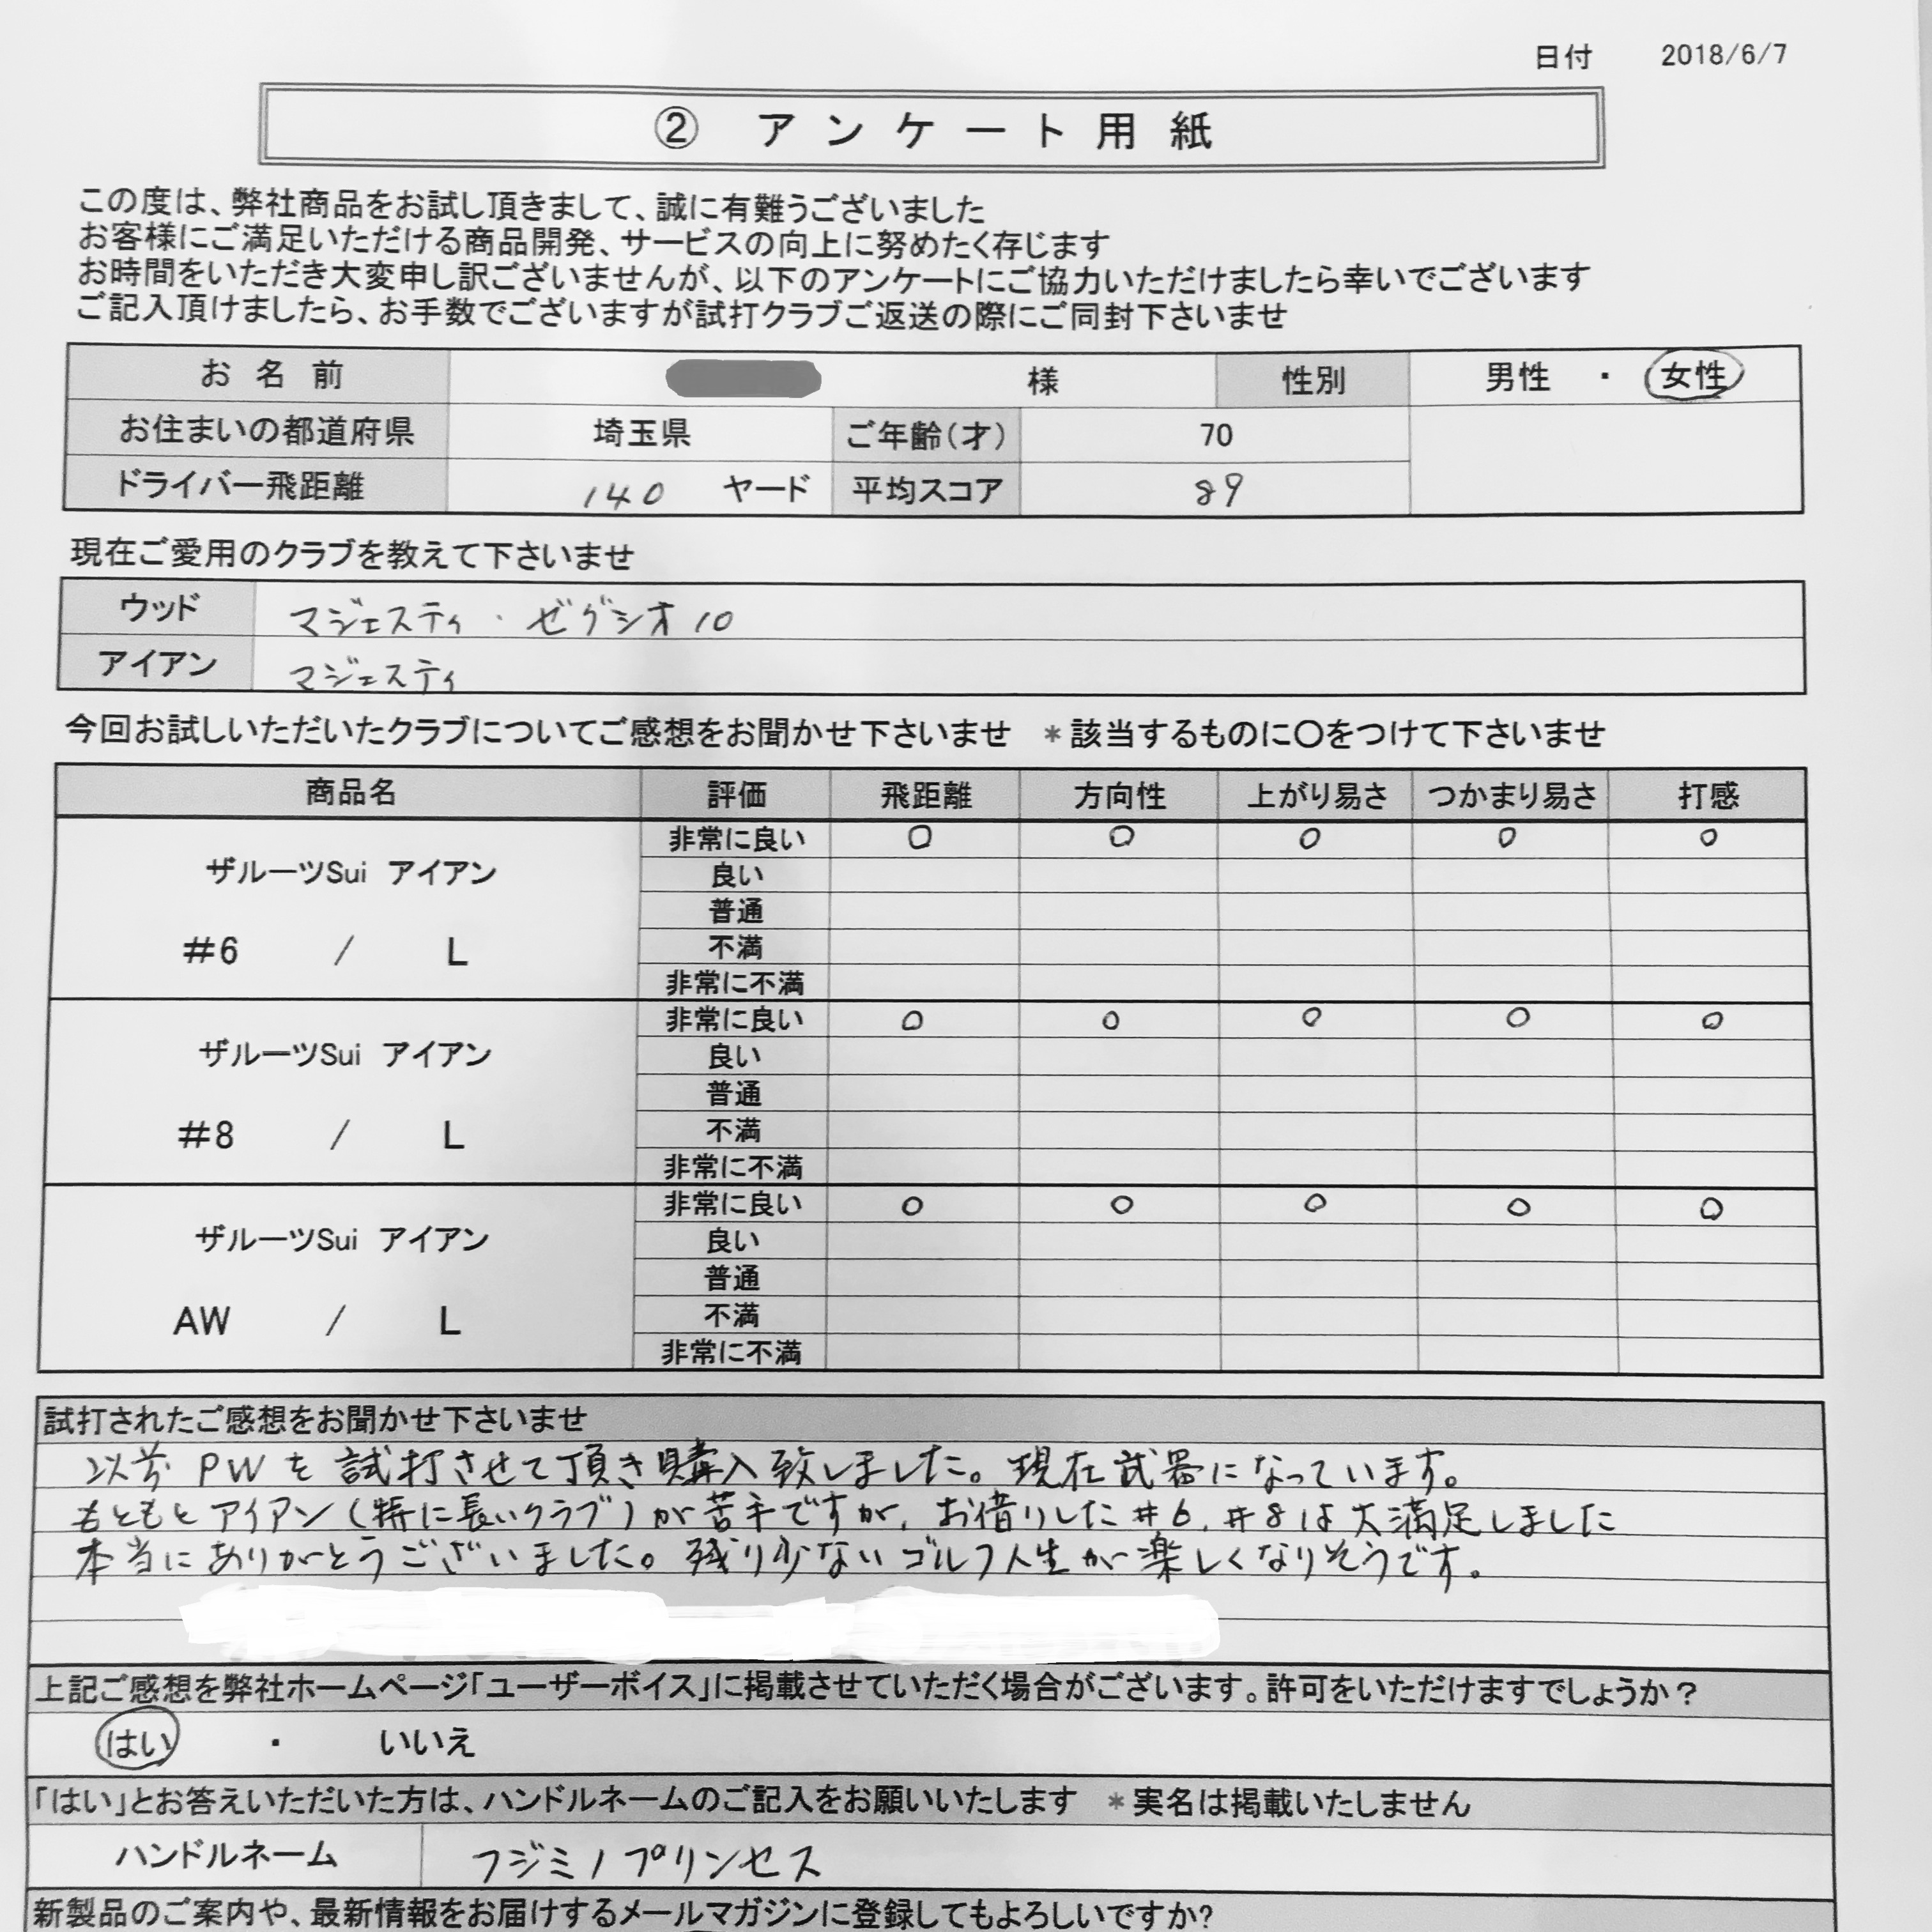 日付 2018/6/7
② アンケート用紙
この度は、弊社商品をお試し頂きまして、誠に有難うございました
お客様にご満足いただける商品開発、サービスの向上に努めたく存じます
お時間をいただき大変申し訳ございませんが、以下のアンケートにご協力いただけましたら幸いでございます
ご記入頂けましたら、お手数でございますが試打クラブご返送の際にご同封下さいませ
お名前 様 性別 男性 ・ 女性
お住まいの都道府県 埼玉県 ご年齢(才) 70
ドライバー飛距離 140 ヤード 平均スコア 89
現在ご愛用のクラブを教えて下さいませ
ウッド マジェスティ・ゼグシオ10
アイアン マジェスティ
今回お試しいただいたクラブについてご感想をお聞かせ下さいませ *該当するものに〇をつけて下さいませ
商品名 評価 飛距離 方向性 上がり易さ つかまり易さ 打感
ザルーツSui アイアン
#6 / L
非常に良い ○ ○ ○ ○ ○
良い
普通
不満
非常に不満
ザルーツSui アイアン
#8 / L
非常に良い ○ ○ ○ ○ ○
良い
普通
不満
非常に不満
ザルーツSui アイアン
AW / L
非常に良い ○ ○ ○ ○ ○
良い
普通
不満
非常に不満
試打されたご感想をお聞かせ下さいませ
以前PWを試打させて頂き購入致しました。現在武器になっています。
もともとアイアン(特に長いクラブ)が苦手ですが、お借りした#6、#8は大満足しました
本当にありがとうございました。残り少ないゴルフ人生が楽しくなりそうです。
上記ご感想を弊社ホームページ「ユーザーボイス」に掲載させていただく場合がございます。許可をいただけますでしょうか?
はい ・ いいえ
「はい」とお答えいただいた方は、ハンドルネームのご記入をお願いいたします *実名は掲載いたしません
ハンドルネーム フジミノプリンセス
新製品のご案内や、最新情報をお届けするメールマガジンに登録してもよろしいですか?